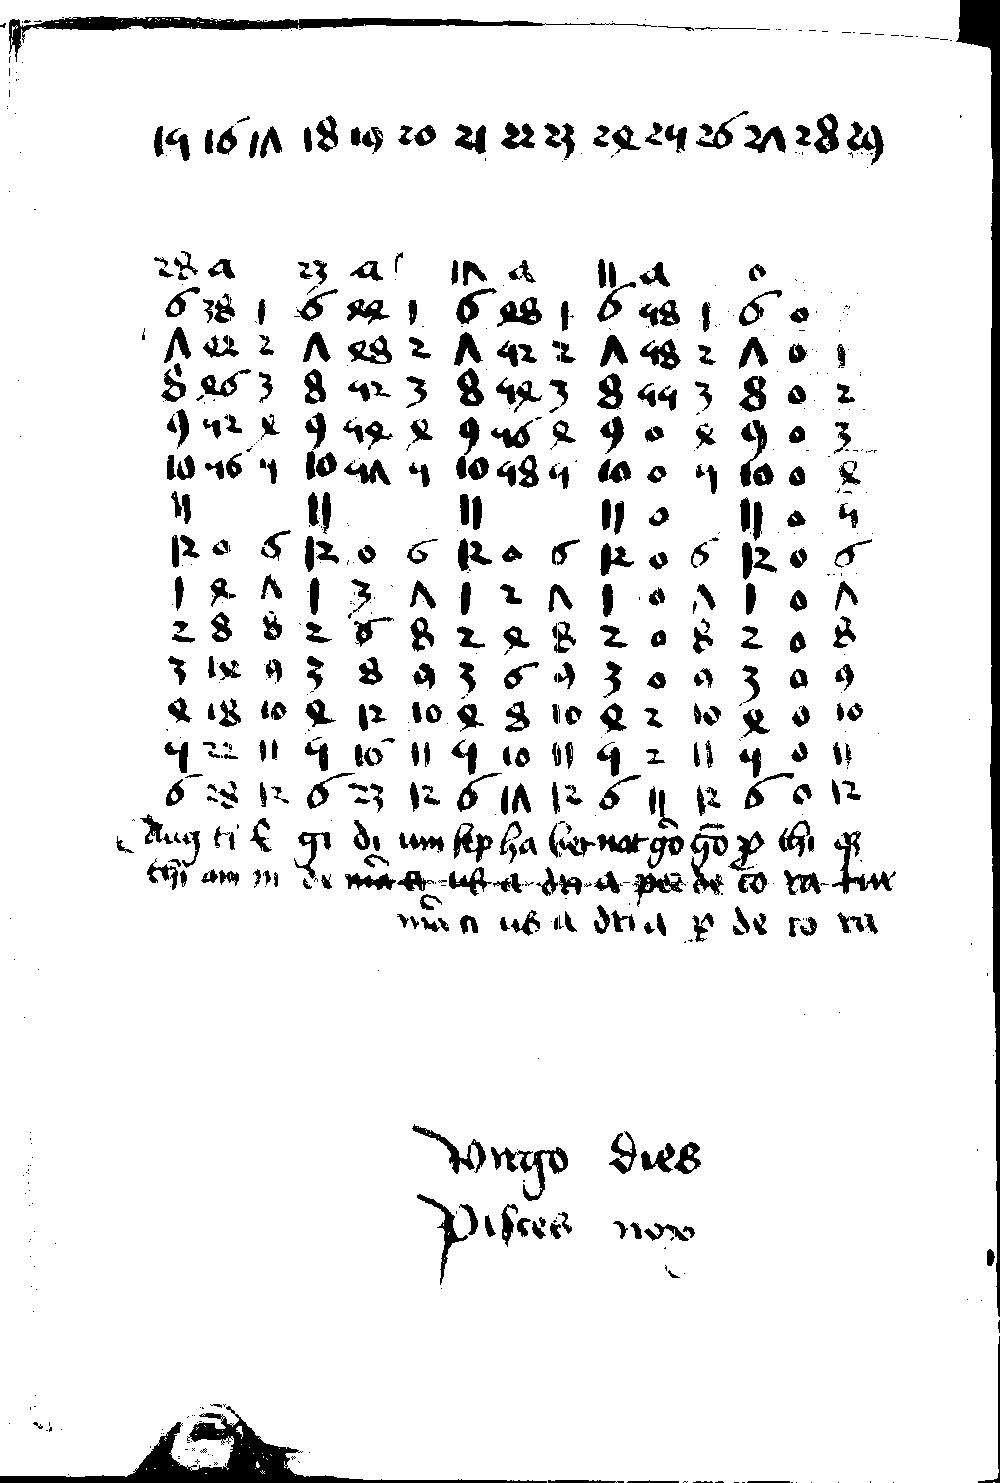 15 16 17 18 19 20 21 22 23 24 25 26 27 28 29
28 a 23 a 17 a 11 a 0
6 38 1 6 44 1 6 48 1 6 58 1 6 0
7 42 2 7 48 2 7 52 2 7 58 2 7 0 1
8 46 3 8 52 3 8 54 3 8 55 3 8 0 2
9 52 4 9 54 4 9 56 4 9 0 4 9 0 3
10 56 5 10 57 5 10 58 5 10 0 5 10 0 4
11 11 11 11 0 11 0 5
12 0 6 12 0 6 12 0 6 12 0 6 12 0 6
1 4 7 1 3 7 1 2 7 1 0 7 1 0 7
2 8 8 2 6 8 2 4 8 2 0 8 2 0 8
3 14 9 3 8 9 3 6 9 3 0 9 3 0 9
4 18 10 4 12 10 4 8 10 4 2 10 4 0 10
5 22 11 5 16 11 5 10 11 5 2 11 5 0 11
6 28 12 6 23 12 6 17 12 6 11 12 6 0 12
Aug ti gi di um sep ha ber nat gō gō ꝓ thi
thi am ni de mā ti us a dri a de co ra tur
mā ti us a dri a ꝑ de co ra
Virgo dies
Pisces nox